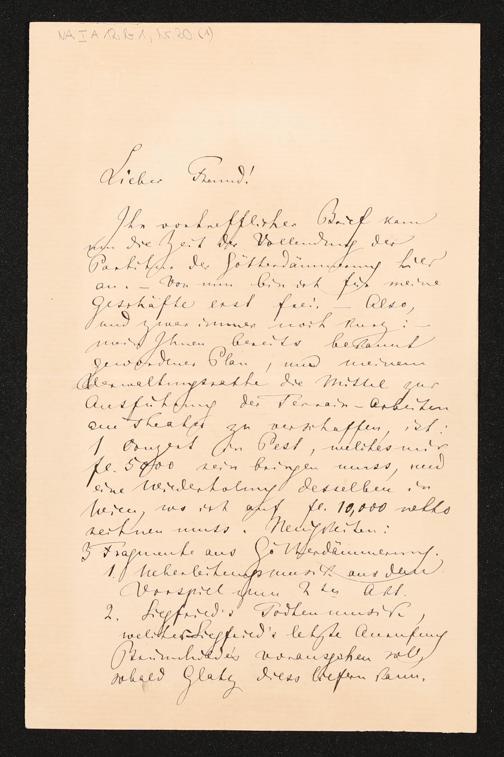 NA I A 12 B 1, Nr 20 (1)
Lieber Freund!
Ihr vortrefflicher Brief kam
um die Zeit der Vollendung der
Partitur der Götterdämmerung hier
an. – Von nun bin ich für meine
Geschäfte erst frei. – Also,
und zwar immer noch kurz: –
mein Ihnen bereits bekannt
gewordener Plan, um meinem
Verwaltungsrathe die Mittel zur
Ausführung der Terrain-Arbeiten
am Theater zu verschaffen, ist:
1 Conzert in Pest, welches mir
fl. 5000 rein bringen muss, und
eine Wiederholung desselben in
Wien, wo ich auf fl. 10,000 netto
rechnen muss. Neuigkeiten:
3 Fragmente aus Götterdämmerung.
1. Ueberleitungsmusik aus dem
Vorspiel zum Akt.
2. Siegfried's Todtenmusik,
welcher Siegfried's letzte Anrufung
Brünnhilde's vorausgehen soll,
sobald Glatz diess liefern kann.